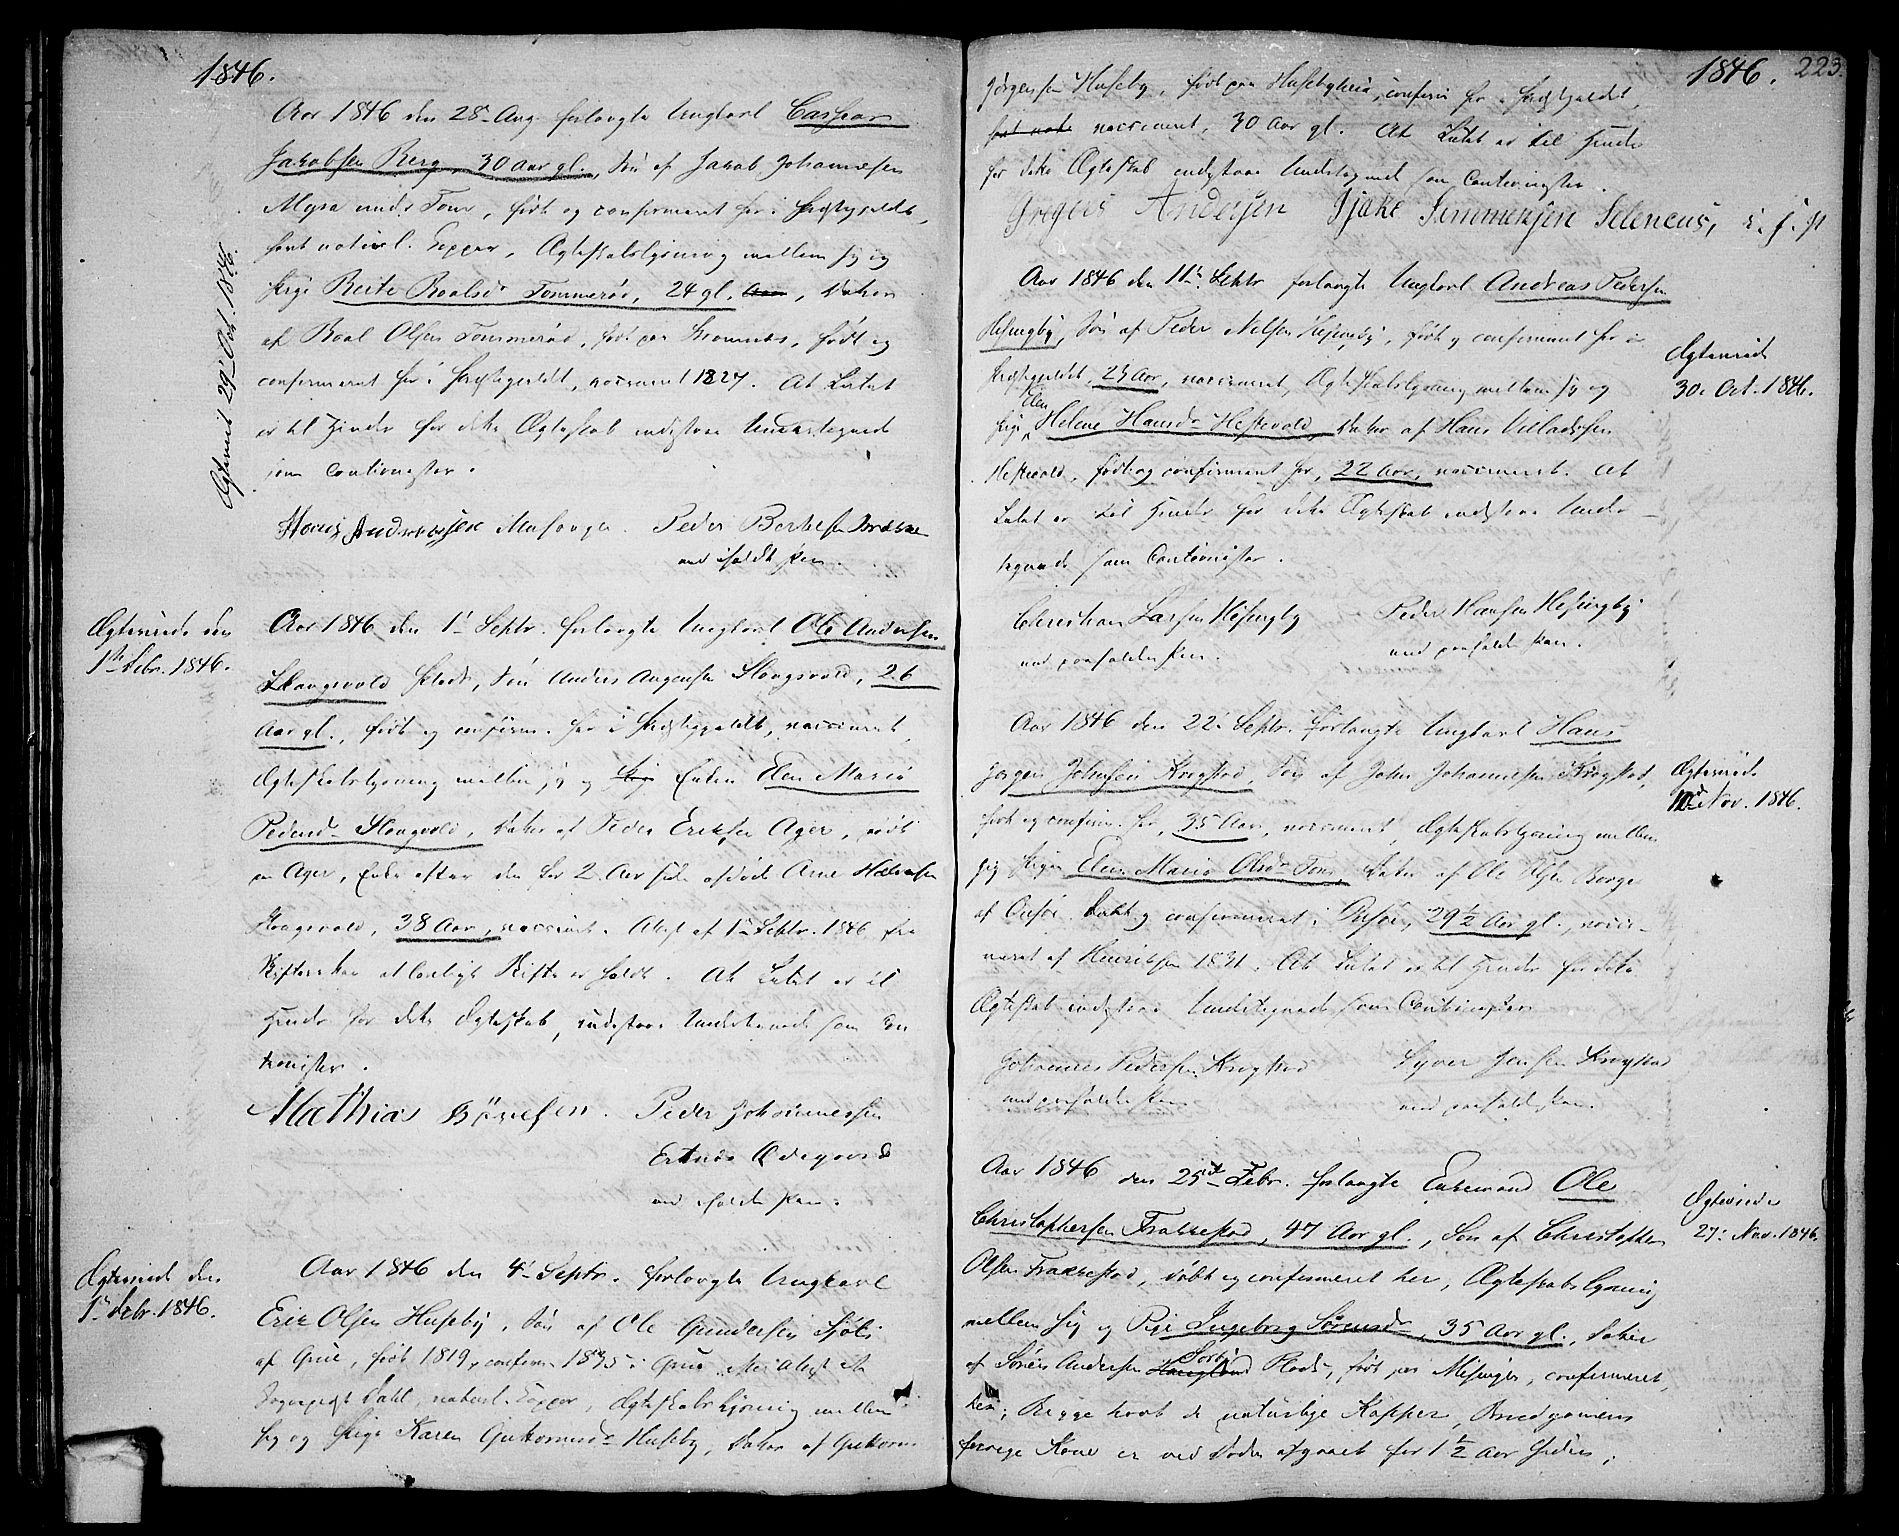 1846.
Aar 1846 den 28de Aug. forlangte Ungkarl Casper
Jakobsen Berg, 30 Aar gl., Søn af Jakob Johannesen
Myra under Tom, født og confirmeret her i Præstegjeldet,
havt naturl. Kopper, Ægteskabslysning mellem sig og
Pige Berte Roalsd. Tommerød, 24 gl. Aar, Datter
af Roal Olsen Tommerød, født paa, født og
confirmeret her i Præstegjeldet, vaccineret 1827. At Intet
er til Hinder for dette Ægteskab indestaae Undertegnede
som Cautionister.
Andersen Peder
med iholdt Pen.
Ægteviet 29de Oct. 1846.
Ægteviede den
1ste Febr. 1846.
Aar 1846 den 1ste Septr. forlangte Ungkarl Ole Andersen
Skaugsvold, Søn Anders Skaugsvold, 26
Aar gl., født og confirm. her i Præstegjeldet, vaccineret,
Ægteskabslysning mellem sig og Pige Enken Elen Maria
Pedersd. Skougsvold, Datter af Peder Eriksen Ager, født
paa Ager, Enke efter den for 2 Aar siden afdøde Arne Halvorsen
Skougsvold, 38 Aar, vaccineret. Attest af 1ste Septr. 1846 fra
Skifteretten at lovligt Skifte er holdt. At Intet er til
Hinder for dette Ægteskab, indestaae Undertegnede som Cau
tionister.
Mathias Børresen. Peder Johannessen
Ødegaard
med iholden Pen.
Ægteviede den
1ste Febr. 1846.
Aar 1846 den 4de Septr. forlangte Ungkarl
Eric Olsen Huseby, Søn af Ole Gundersen
af Grue, født 1819, confirm. 1835 i Grue
Dahl, naturl. Kopper, Ægteskabslysning mellem
sig og Pige Karen Guttormsd. Huseby, Datter af Guttorm
1846. 223.
Jørgensen Huseby, født paa Husebyheia, confirm. her i Præstegjeldet,
havt nat. vaccineret, 30 Aar gl. At Intet er til Hinder
for dette Ægteskab indestaae Undertegnede som Cautionister.
Gregers Andersen Simmensen
Aar 1846 den 11te Septr. forlangte Ungkarl Andreas Pedersen
Høsingby, Søn af Peder Nilsen Høsingby, født og confirmeret her i
Præstegjeldet, 25 Aar, vaccineret, Ægteskabslysning mellem sig og
Elen
Pige Helene Hansd. Hestevold, Datter af Hans Villadsen
Hestevold, født og confirmeret her, 22 Aar, vaccineret. At
Intet er til Hinder for dette Ægteskab indestaae Under-
tegnede som Cautionister.
Christian Larsen Høsingby Peder Hansen Høsingby
med paaholden Pen. med paaholden Pen.
Ægteviede
30. Oct. 1846.
Aar 1846 den 22de Septr. forlangte Ungkarl Hans
Jørgen Johnsen Krogstad, Søn af John Johannesen Krogstad,
født og confirm. her, 35 Aar, vaccineret, Ægteskabslysning mellem
sig Pigen Elen Maria Olsd. Tom, Datter af Ole Olsen Borge
af Onsø, Døbt og confirmeret i Onsø, 29 1/2 Aar gl., vacci-
neret af Henriksen 1831. At Intet er til Hinder for dette
Ægteskab indestaae Undertegnede som Cautionister
Johannes Pedersen Krogstad Syver Jensen Krogstad
med paaholden Pen. med paaholden Pen.
Ægteviede
10de Nov. 1846.
Aar 1846 den 25de Febr. forlangte Enkemand Ole
Christophersen Frakkestad, 47 Aar gl., Søn af Christopher
Olsen Frakkestad, døbt og confirmeret her, Ægteskabslysning
mellem sig og Pige Ingeborg Sørensd., 35 Aar gl., Datter
af Søren Andersen, født paa Misingen, confirmeret,
her; Begge havt de naturlige Kopper, Brudgommens
forrige Kone er ved Døden afgaaet for 1 1/2 Aar siden,
Ægteviede
27. Nov. 1846.